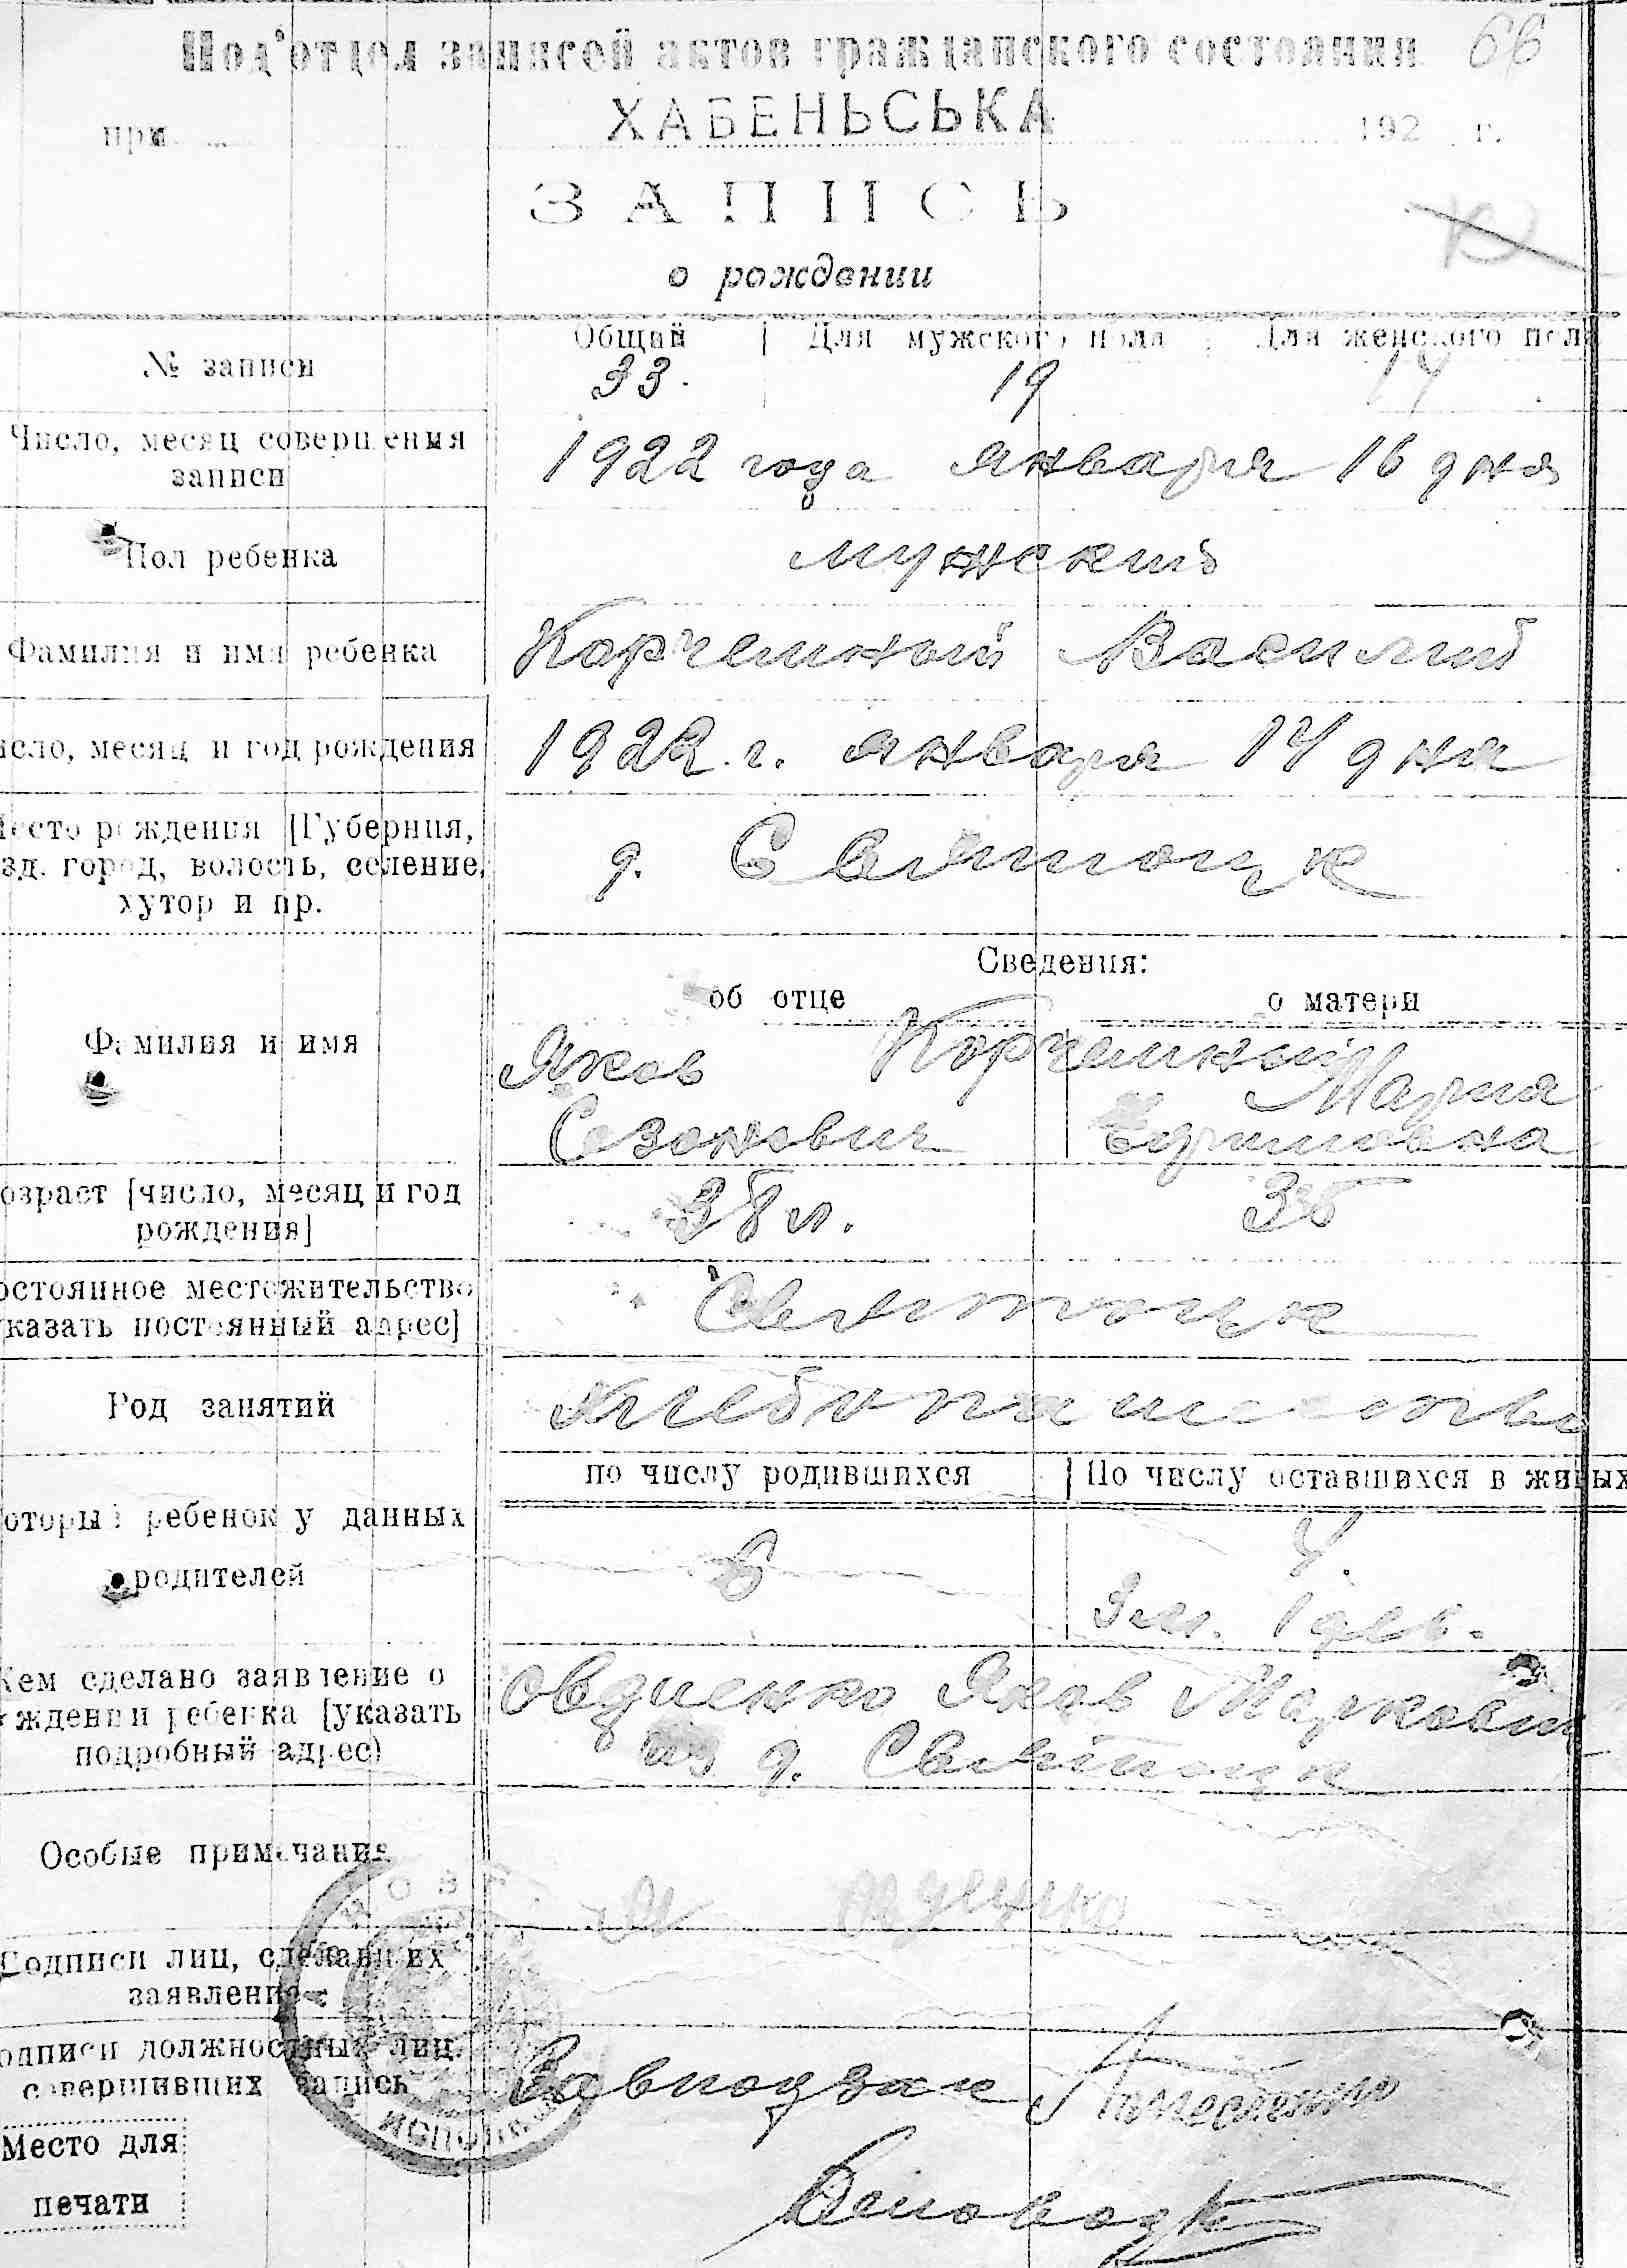 Под'отдел записей актов гражданского состояния 66
при ХАБЕНЬСЬКА 192 г.
ЗАПИСЬ
о рождении
№ записи
Общий Для мужского пола Для женского пол
33. 19 14
Число, месяц совершения
записи
1922 года января 16 дня
Пол ребенка
мужский
Фамилия и имя ребенка
Корчемный Василий
исло, месяц и год рождения
1922 г. января 14 дня
Место рождения [Губерния,
зд. город, волость, селение,
хутор и пр.
д. Святоцк
Сведения:
об отце о матери
Фамилия и имя
Яков Корчемный Мария
Созонович
озраст [число, месяц и год
рождения]
38 л. 35
остоянное местожительство
казать постоянный адрес]
Святоцк
Род занятий
Хлебопашество
по числу родившихся По числу оставшихся в живых
оторый ребенок у данных
родителей
6 4.
3 м. 1 дев.
Кем сделано заявление о
ждении ребенка [указать
подробный адрес)
Овдиенко Яков Маркович
из д. Святоцк
Особые примечания
Подписи лиц, сделавших
заявление
одписи должностных лиц,
совершивших запись
Завподзаг
Место для
печати
Веновод